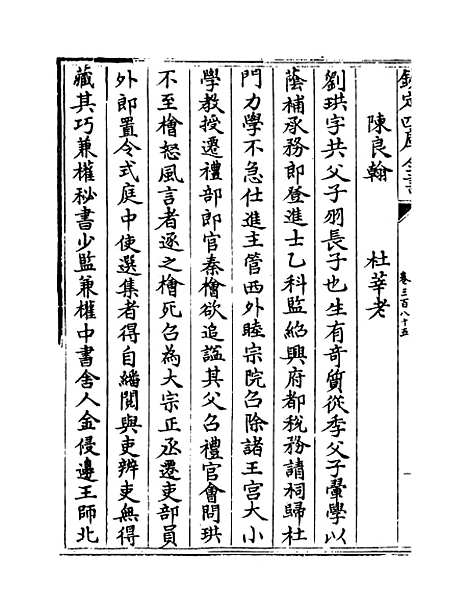 欽定四庫全書
卷三百八十五
一
陳良翰　杜莘老
劉珙字共父子羽長子也生有奇質從季父子翬學以
蔭補承務郎登進士乙科監紹興府都稅務請祠歸杜
門力學不急仕進主管西外睦宗院召除諸王宮大小
學教授遷禮部郎官秦檜欲追諡其父召禮官會問珙
不至檜怒風言者逐之檜死召為大宗正丞遷吏部員
外郎置令式庭中使選集者得自繙閱與吏辨吏無得
藏其巧兼權秘書少監兼權中書舍人金侵邊王師北